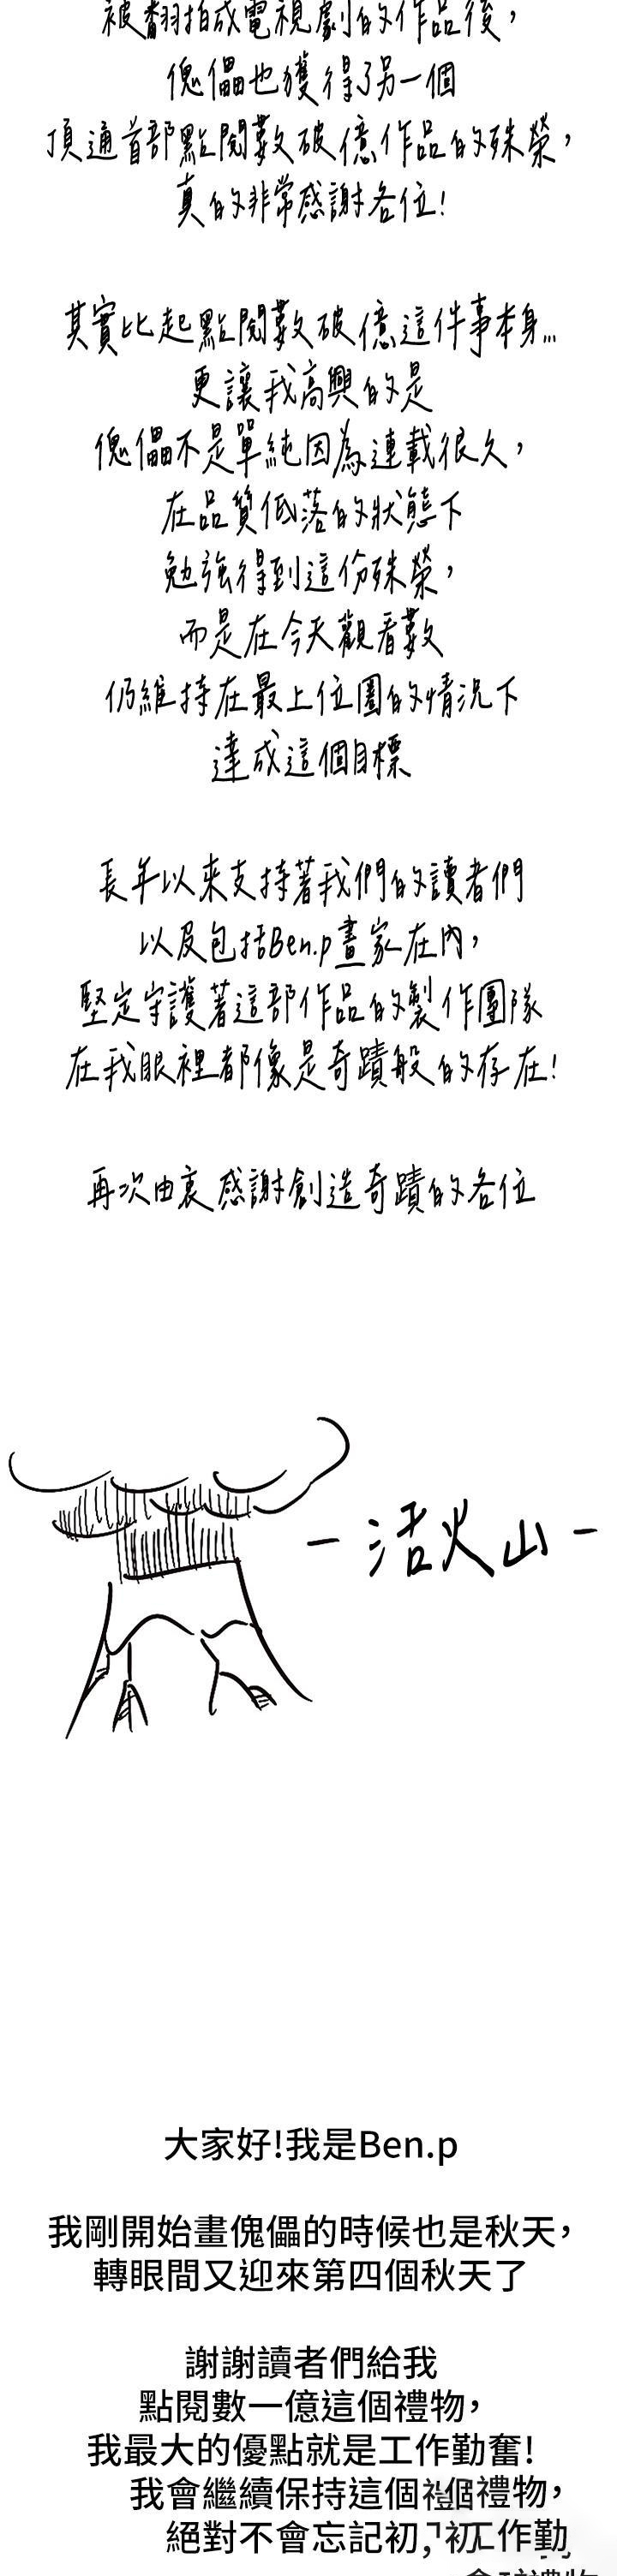 被翻拍成電視劇的作品後，
傀儡也獲得了另一個
頂通首部點閱數破億作品的殊榮，
真的非常感謝各位！
其實比起點閱數破億這件事本身...
更讓我高興的是
傀儡不是單純因為連載很久，
在品質低落的狀態下
勉強得到這份殊榮，
而是在今天觀看數
仍維持在最上位圈的情況下
達成這個目標
長年以來支持著我們的讀者們
以及包括Ben.p畫家在內，
堅定守護著這部作品的製作團隊
在我眼裡都像是奇蹟般的存在！
再次由衷感謝創造奇蹟的各位
－活火山－
大家好！我是Ben.p
我剛開始畫傀儡的時候也是秋天，
轉眼間又迎來第四個秋天了
謝謝讀者們給我
點閱數一億這個禮物，
我最大的優點就是工作勤奮！
我會繼續保持這個禮個禮物，
絕對不會忘記初，初工作勤